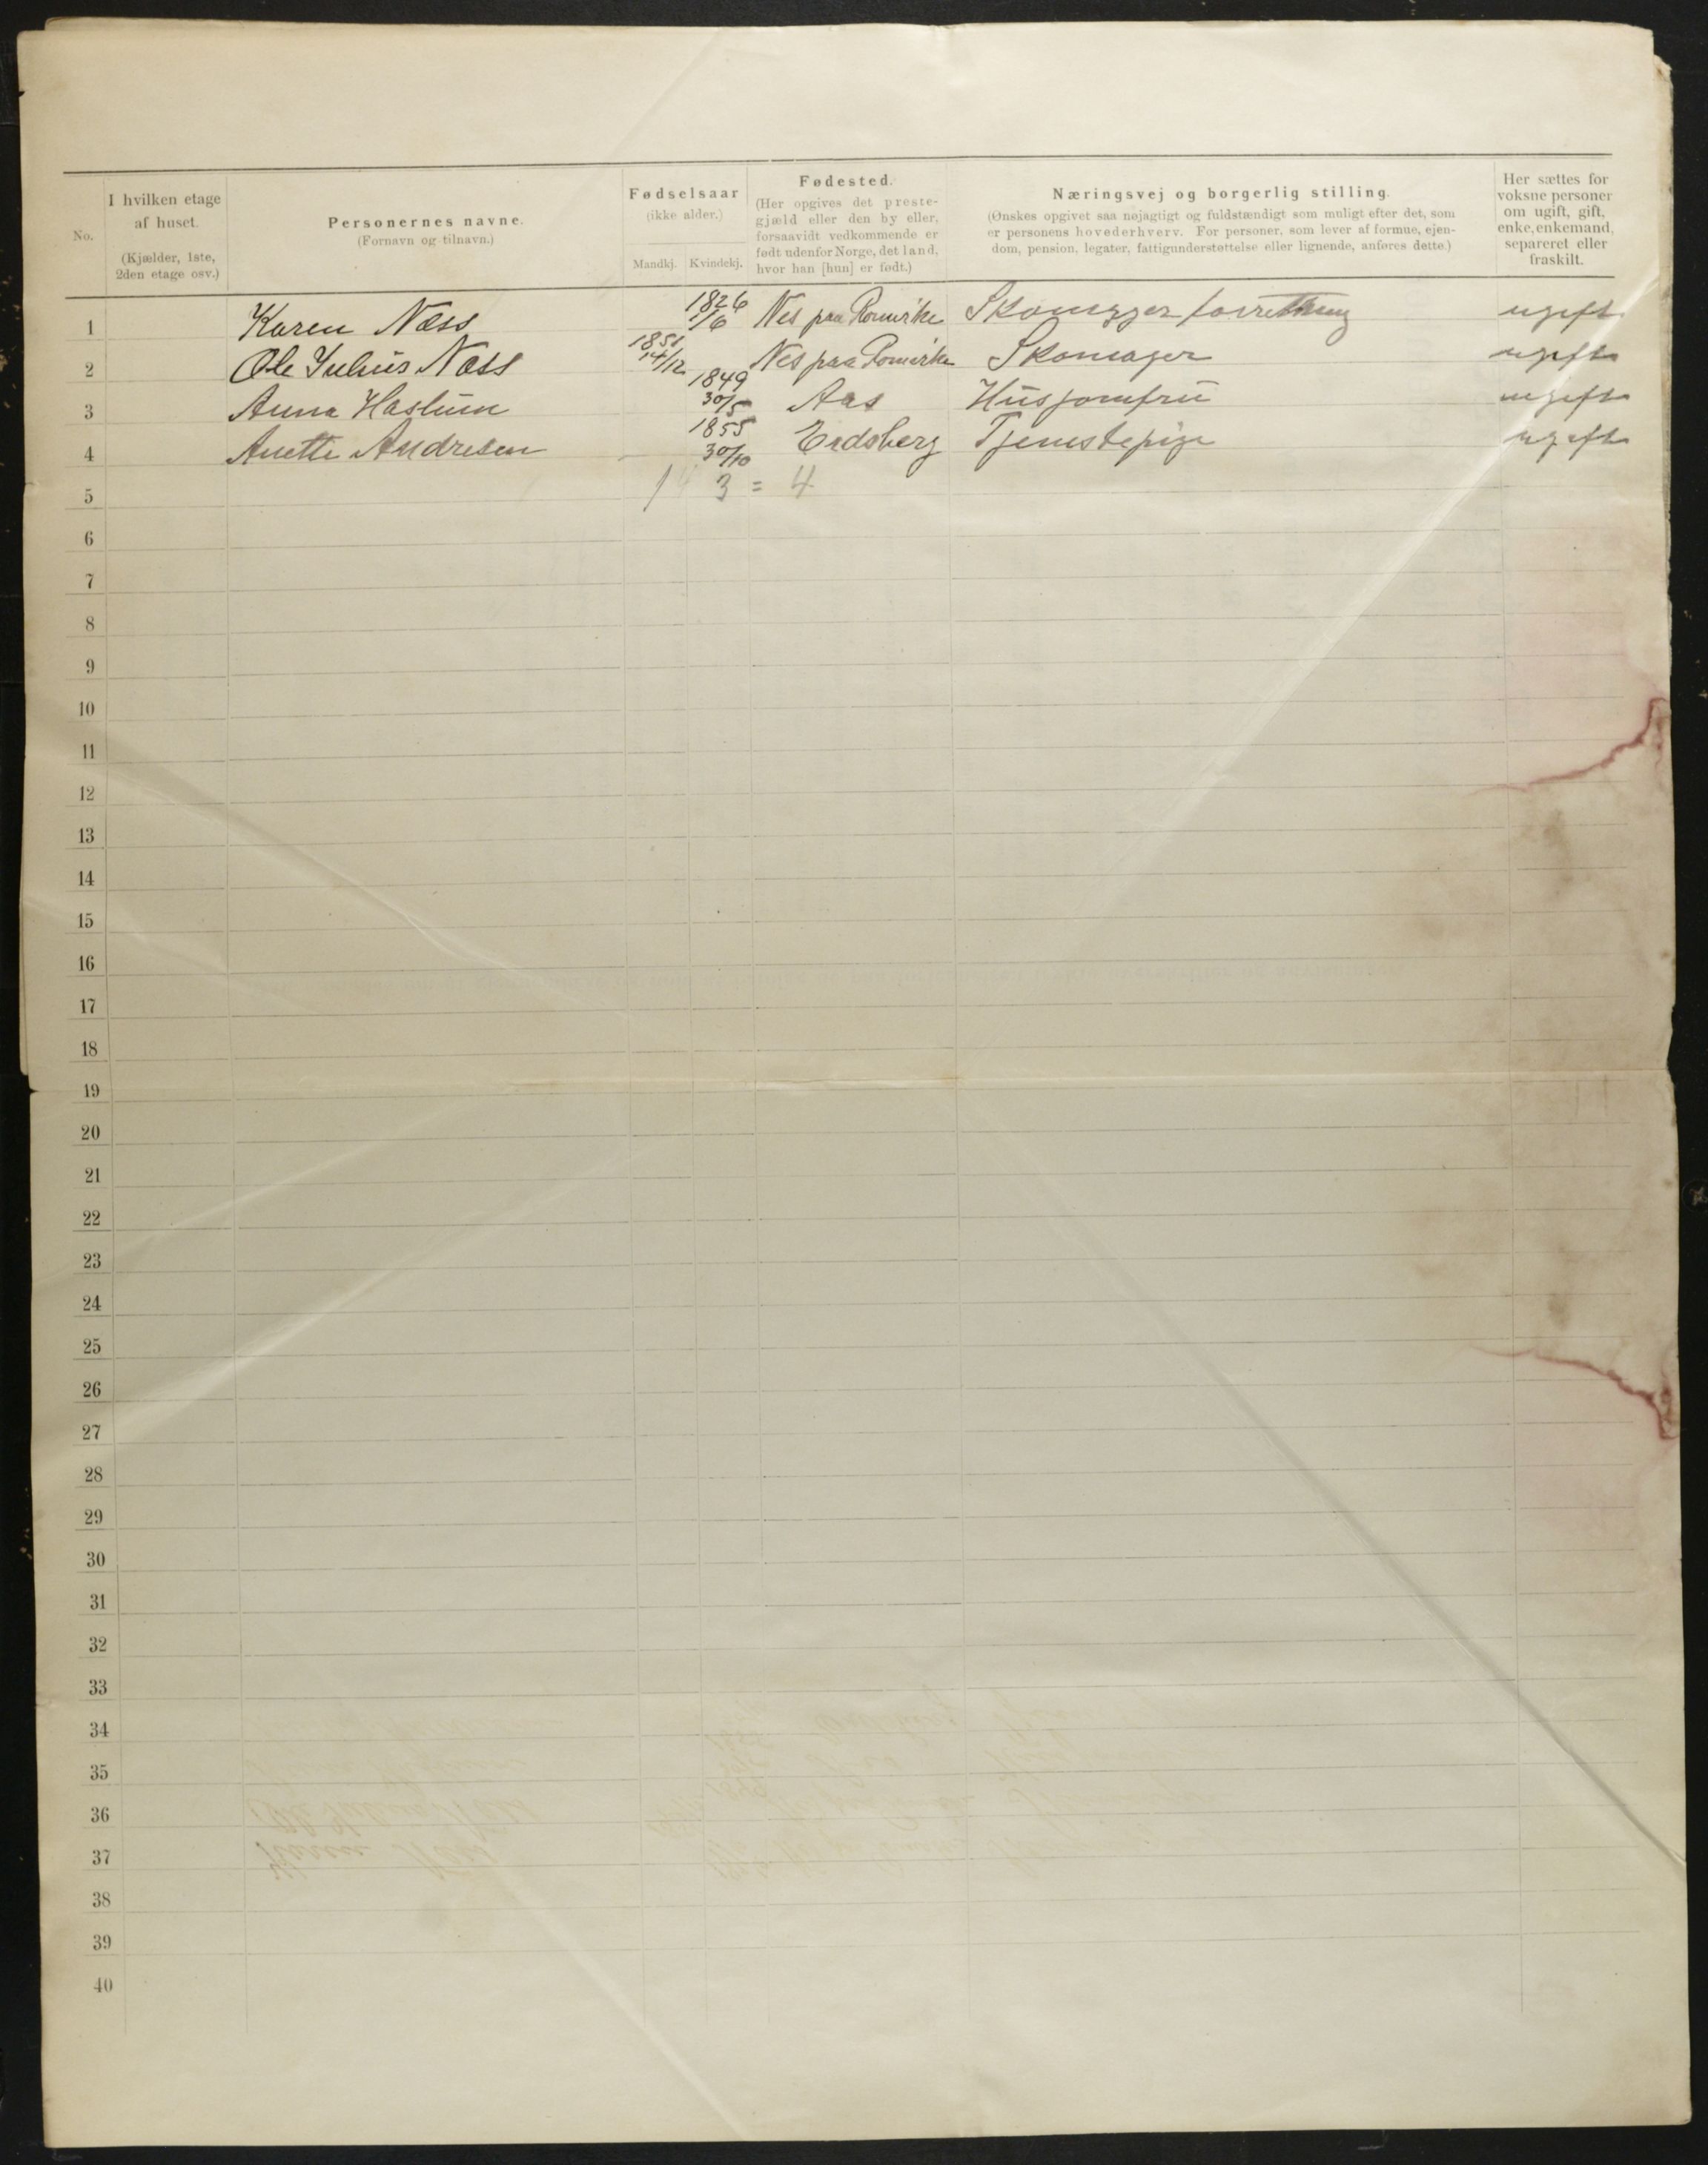 No.
I hvilken etage
af huset.
(Kjælder, 1ste,
2den etage osv.)
Personernes navne.
(Fornavn og tilnavn.)
Fødselsaar
(ikke alder.)
Mandkj. Kvindekj.
Fødested.
(Her opgives det preste-
gjæld eller den by eller,
forsaavidt vedkommende er
født udenfor Norge, det land,
hvor han [hun] er født.)
Næringsvej og borgerlig stilling.
(Ønskes opgivet saa nøjagtigt og fuldstændigt som muligt efter det, som
er personens hovederhverv. For personer, som lever af formue, ejen-
dom, pension, legater, fattigunderstøttelse eller lignende, anføres dette.)
Her sættes for
voksne personer
om ugift, gift,
enke, enkemand,
separeret eller
fraskilt.
1 Karen Næss 1826 1/6 Nes paa Romerike Skomager forretning ugift
2 Ole Julius Næss 1851 14/12 Nes paa Romerike Skomager ugift
3 Anna Haslum 1849 30/5 Aas Husjomfru ugift
4 Anette Andresen 1855 30/10 Eidsberg Tjenestepige ugift
5 1 3 = 4
6
7
8
9
10
11
12
13
14
15
16
17
18
19
20
21
22
23
24
25
26
27
28
29
30
31
32
33
34
35
36
37
38
39
40